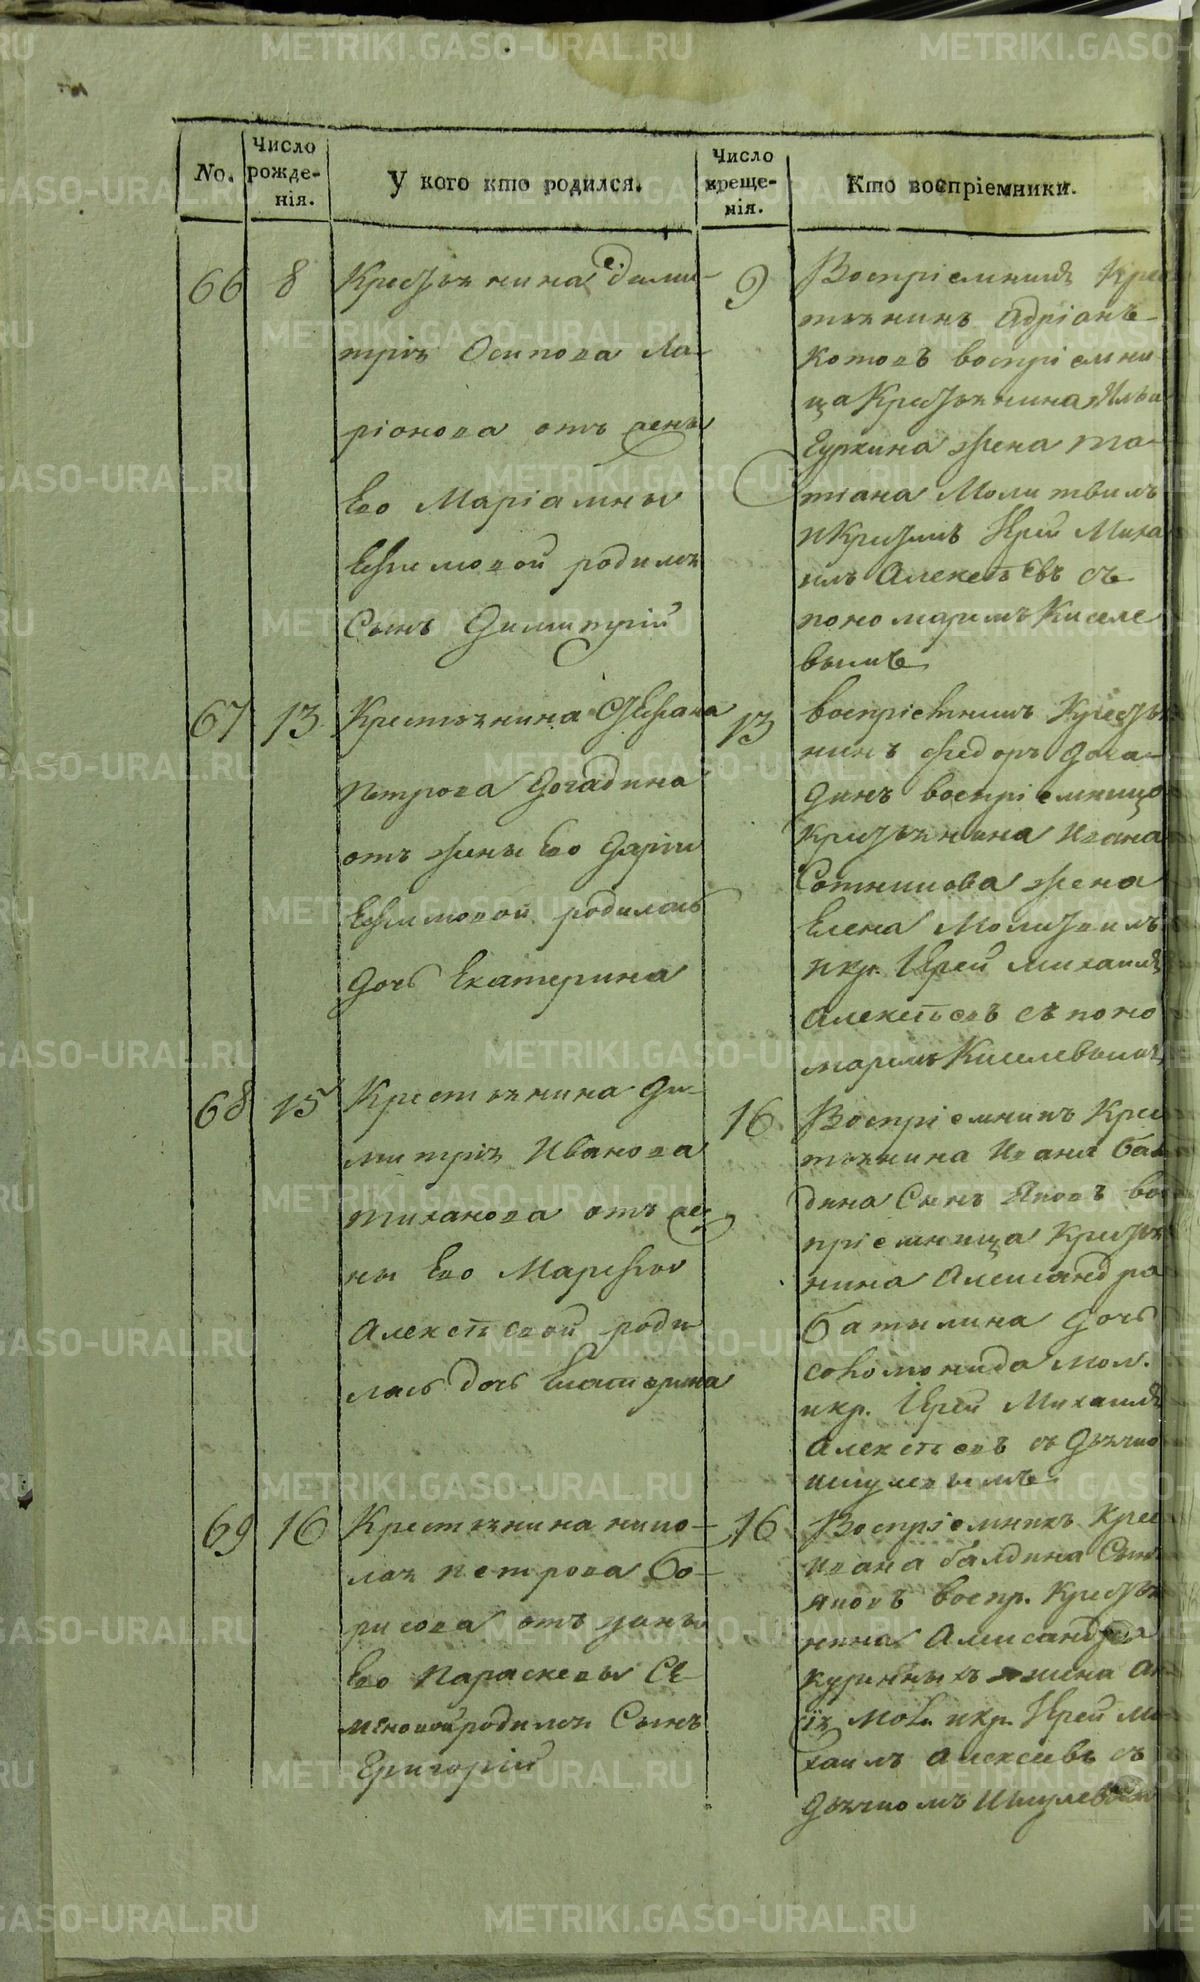 No.
Число рожденія.
У кого кто родился.
Число крещенія.
Кто воспріемники.
66
8
Крестьянина Дими-
трія Осипова Ла-
ріонова отъ жены
Его Маріамны
Ефимовой родился
Сынъ Димитрій
9
Воспріемникъ Крес
тьянинъ Адріанъ
Котовъ воспріемни
ца Крестьянина Ильи
жена Та-
тіана Молитвилъ
икрестилъ Іерей Миха
илъ Алексѣевъ съ
пономаремъ Киселе
вымъ
67
13
Крестьянина Стефана
Петрова Догадина
отъ жены Его Дарьи
Ефимовой родилась
дочь Екатерина
13
воспріемникъ Крестья
нинъ Федоръ Дога-
динъ воспріемница
Крестьянина Ивана
Сотникова жена
Елена Молитвилъ
икр. Іерей Михаилъ
Алексѣевъ съ поно
маремъ Киселевымъ
68
15
Крестьянина Ди-
митрія Иванова
Тиханова отъ же
ны Его Марфы
Алексѣевой роди
лась дочь Екатерина
16
Воспріемникъ Крес
тьянина Ивана Бал
дина Сынъ Яковъ вос
пріемница Крестья
нина Александра
Батылина дочь
Соломонида мол.
икр. Іерей Михаилъ
Алексѣевъ съ Дьячко
69
16
Крестьянина Нико-
лая Петрова Бо-
рисова отъ жены
Его Параскевы Се
меновой родился Сынъ
Григорій
16
Воспріемникъ Крес
Ивана Балдина Сынъ
Яковъ воспр. Крестья
нина Александра
жена
мол. икр. Іерей Ми
хаилъ Алексѣевъ съ
Дьячкомъ